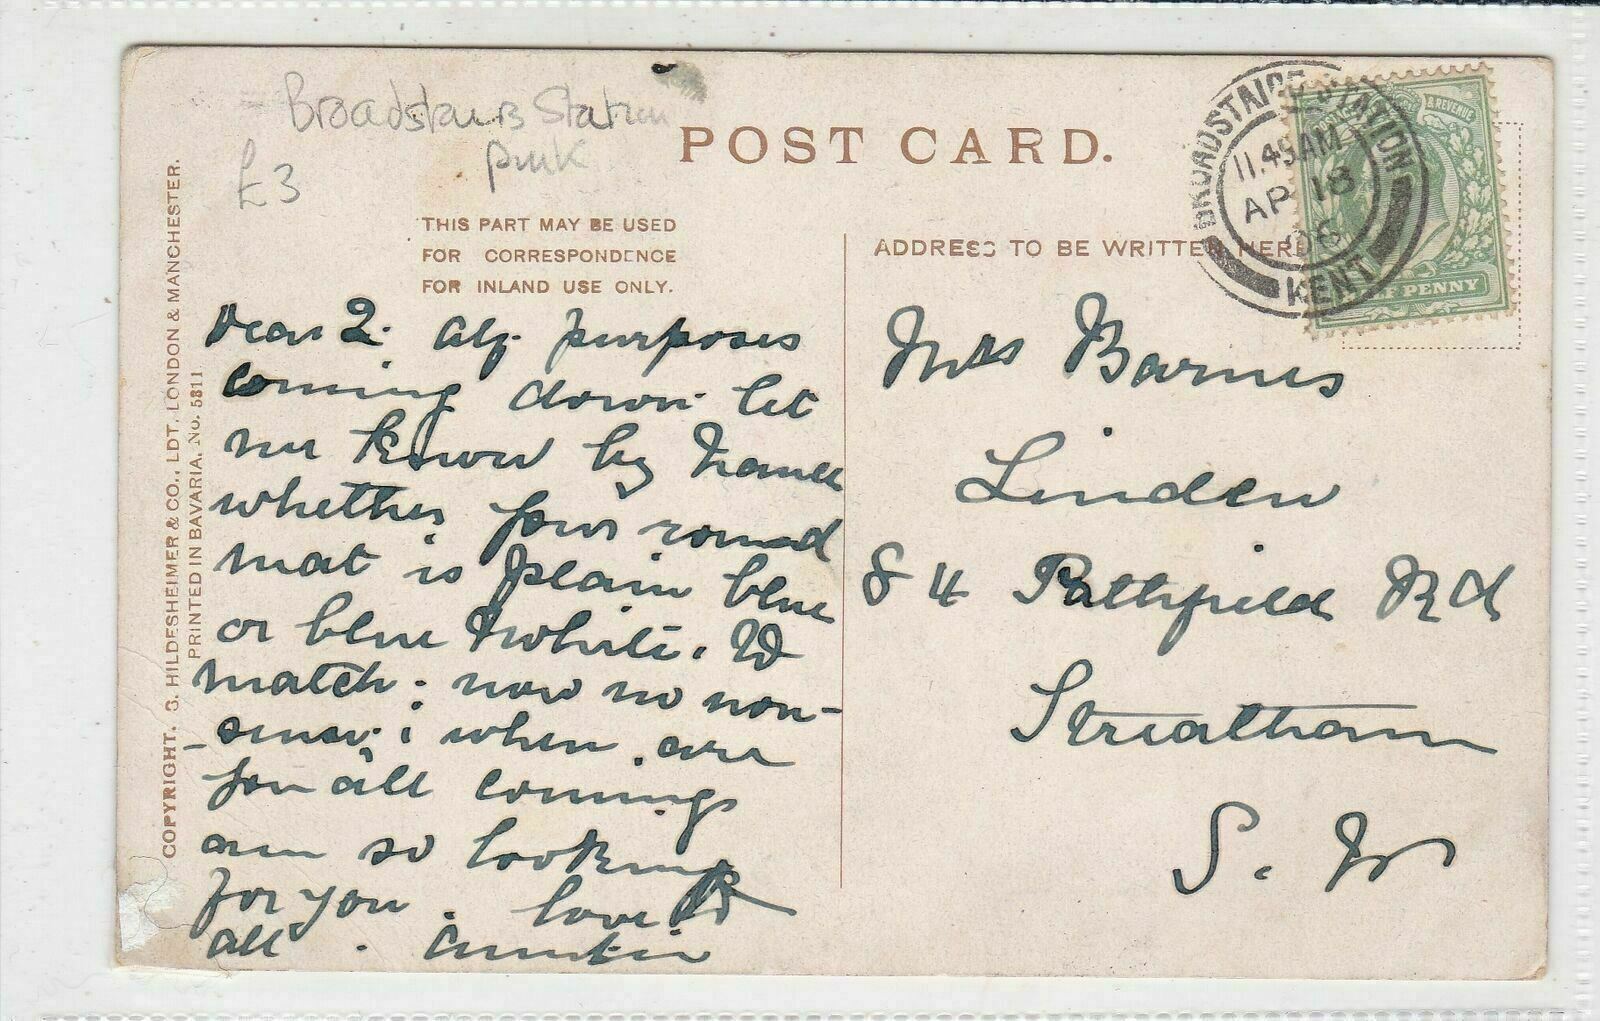 Broadstairs Station
pmk
£3
POST CARD.
THIS PART MAY BE USED
FOR CORRESPONDENCE
FOR INLAND USE ONLY.
ADDRESS TO BE WRITTEN HERE
BROADSTAIRS STATION
11.49AM
AP 18
06
KENT
& REVENUE
HALF PENNY
COPYRIGHT. S. HILDESHEIMER & CO., LDT. LONDON & MANCHESTER.
PRINTED IN BAVARIA. No. 5311.
Dear 2. purposes
coming down let
me know by
whether your round
mat is plain blue
or blue & white. To
match. now no non-
sense; when are
you all coming
am so looking
for you. love to
all. Auntie
Mrs Barnes
Linden
84 Pathfield Rd
Streatham
S. W